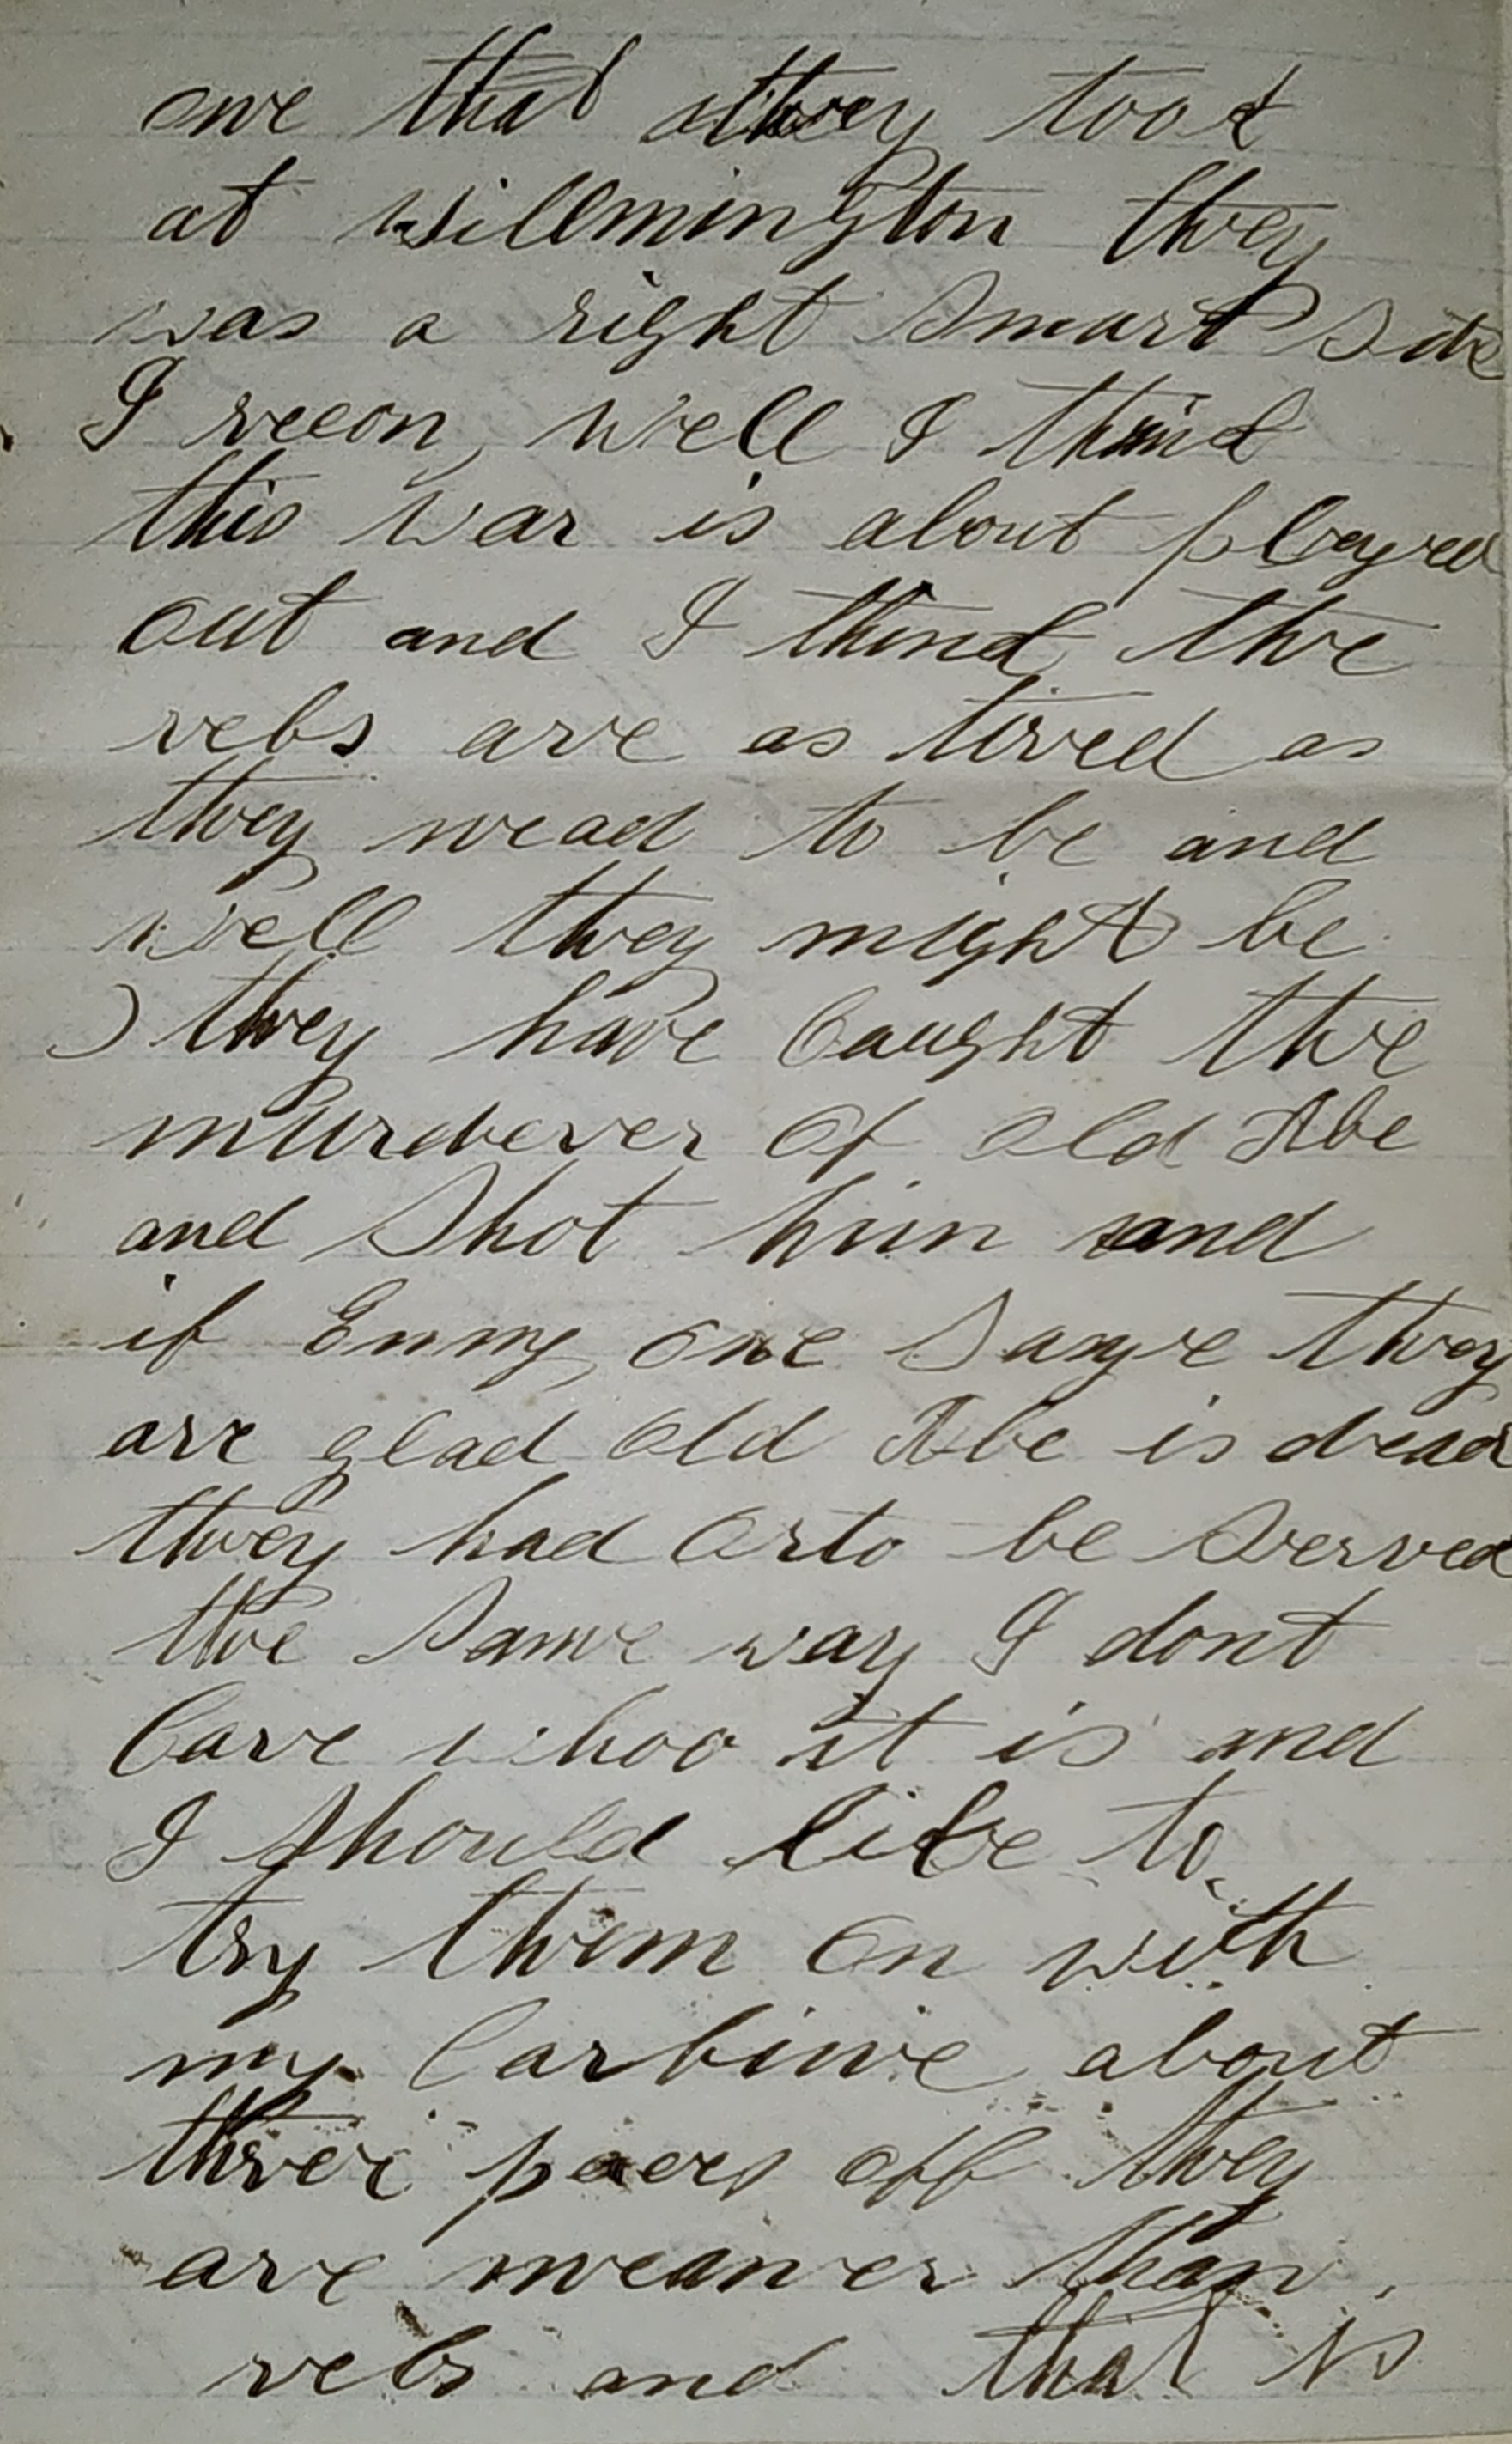 one that they took
at Willmington they
was a right smart site
I recon, well I think
this war is about played
out and I think the
rebs are as tired as
they nead to be and
well they might be
they have Caught the
murderer of old Abe
and Shot him and
if Enny one Saye they
are glad old Abe is dead
they had orto be Served
the Same way I dont
Care whoo it is and
I Should like to
try them on with
my Carbine about
three paces off they
are meaner than
rebs and that is